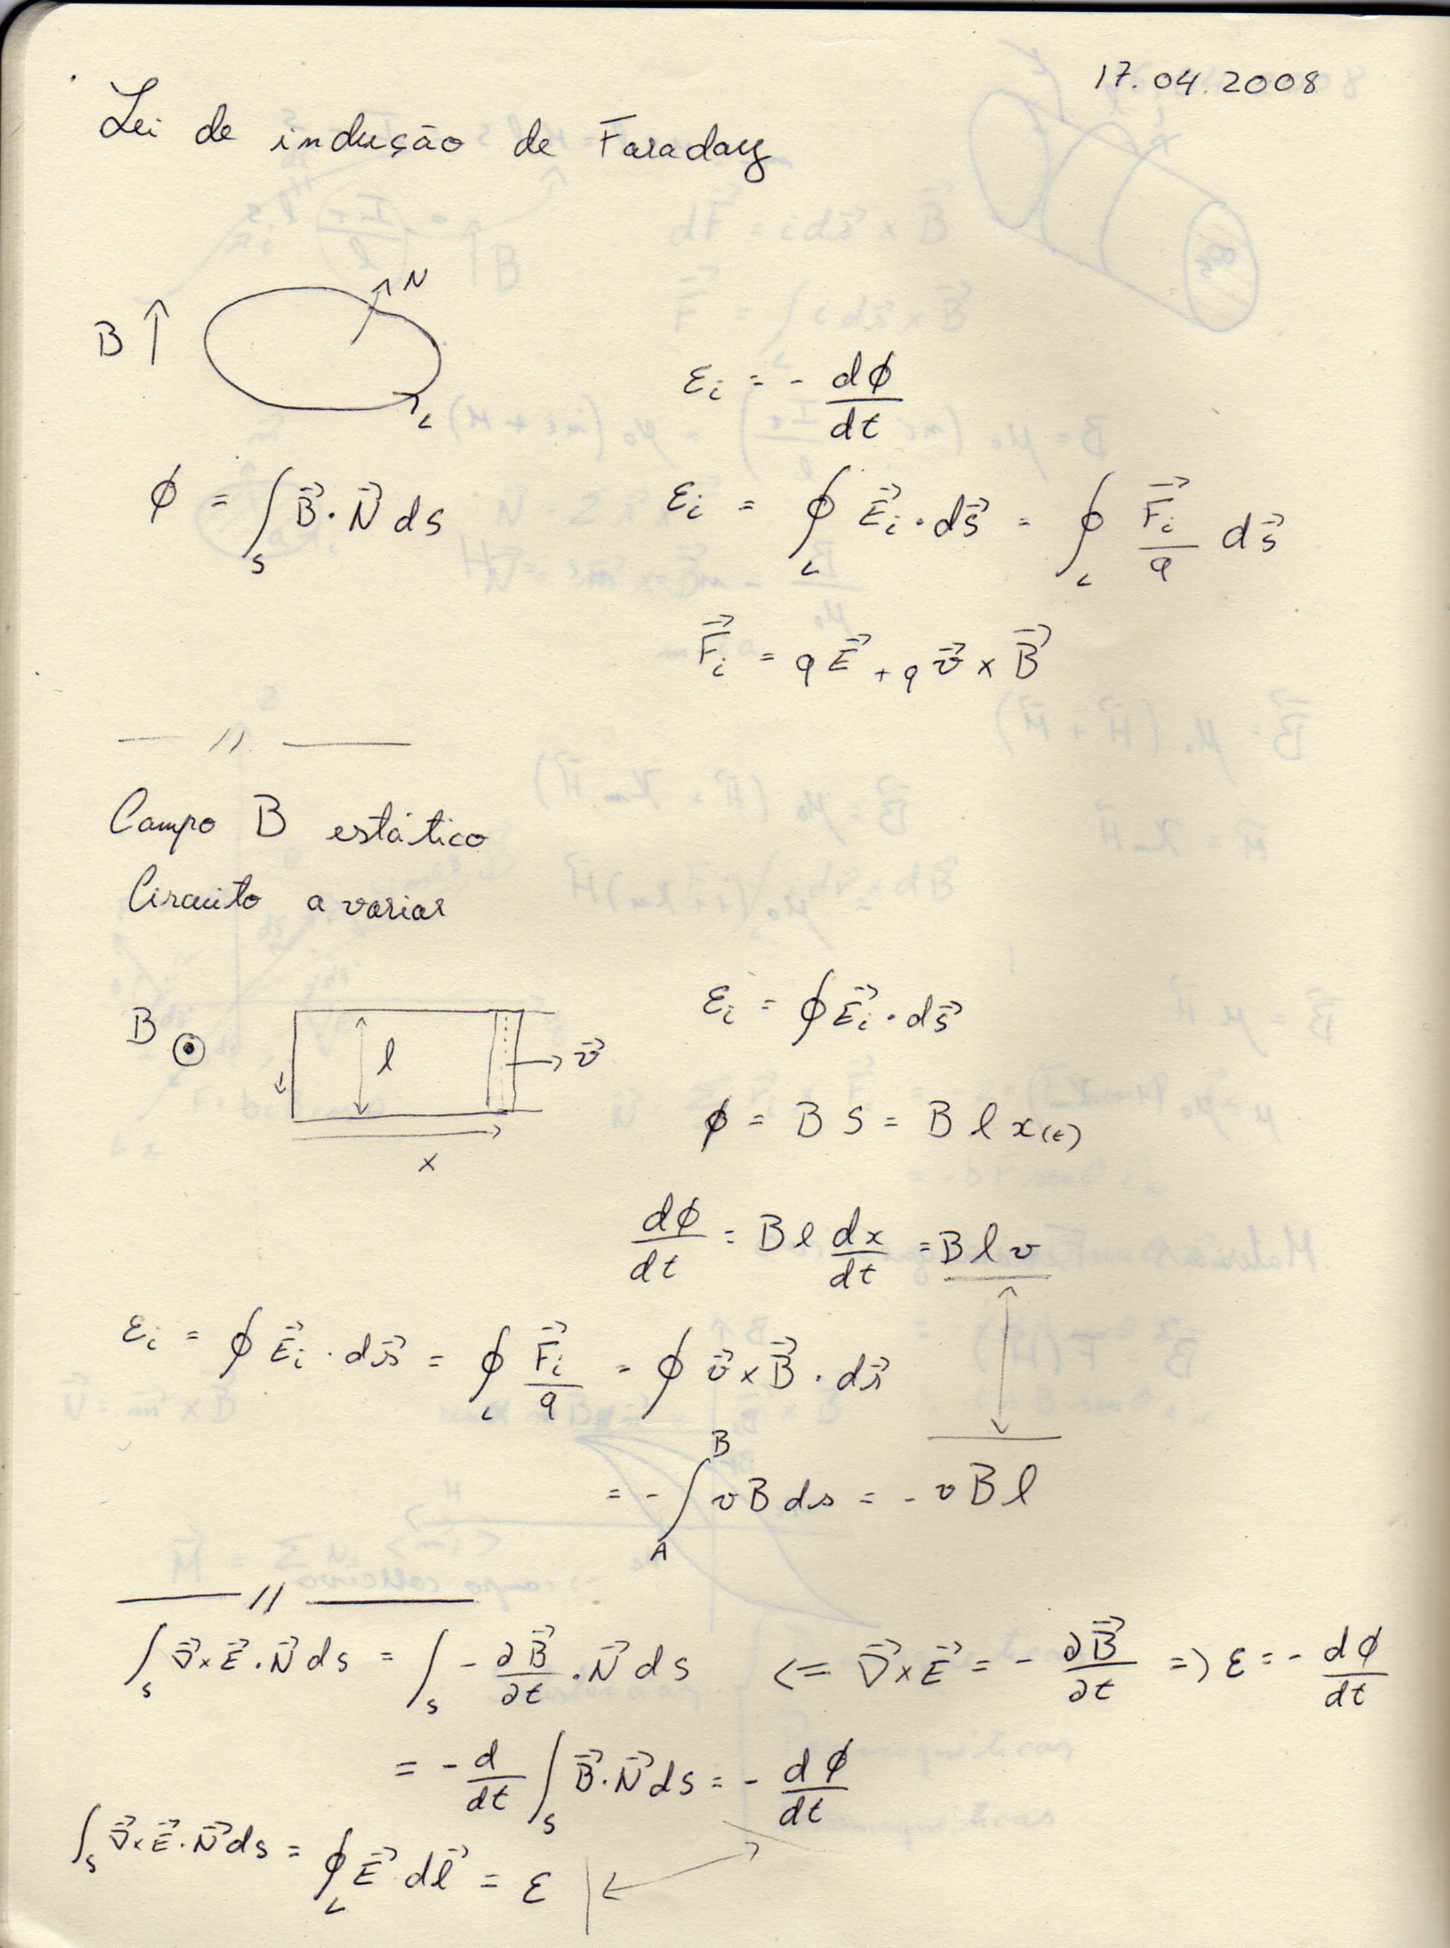 17.04.2008
Lei de indução de Faraday
N
B ↑
L
εi = - dφ/dt
φ = ∫_S B⃗·N⃗ ds
εi = ∮_L E⃗i·ds⃗ = ∮_L F⃗i/q ds⃗
F⃗i = qE⃗ + qv⃗ × B⃗
— // —
Campo B estático
Circuito a variar
B ⊙
l
v⃗
x
εi = ∮ E⃗i·ds⃗
φ = B S = B l x(t)
dφ/dt = B l dx/dt = B l v
εi = ∮ E⃗i · ds⃗ = ∮_L F⃗i/q = ∮ v⃗ × B⃗ · ds⃗
= - ∫_A^B v B ds = - v B l
— // —
∫_S ∇⃗×E⃗·N⃗ ds = ∫_S - ∂B⃗/∂t · N⃗ ds <= ∇⃗×E⃗ = - ∂B⃗/∂t => ε = - dφ/dt
= - d/dt ∫_S B⃗·N⃗ ds = - dφ/dt
∫_S ∇⃗×E⃗·N⃗ ds = ∮_L E⃗ dl⃗ = ε